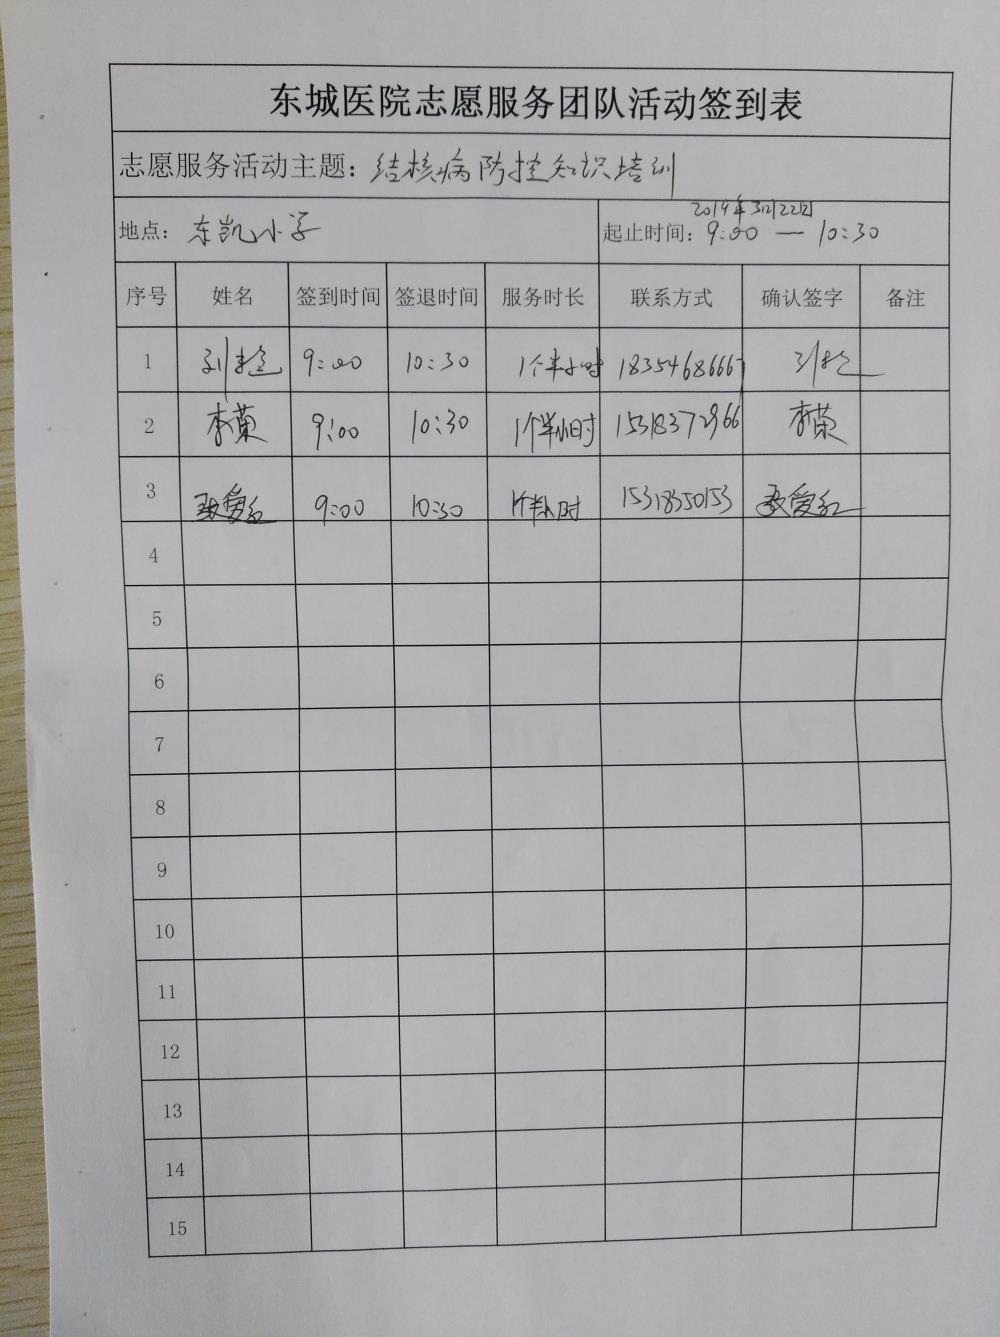 东城医院志愿服务团队活动签到表
志愿服务活动主题：结核病防控知识培训
2019年3月22日
地点：东凯小学 起止时间：9:00 — 10:30
序号 姓名 签到时间 签退时间 服务时长 联系方式 确认签字 备注
1 刘 9:00 10:30 1个半小时 18354686667 刘
2 李荣 9:00 10:30 1个半小时 15318372966 李荣
3 爱红 9:00 10:30 1个半小时 15318350153 爱红
4
5
6
7
8
9
10
11
12
13
14
15